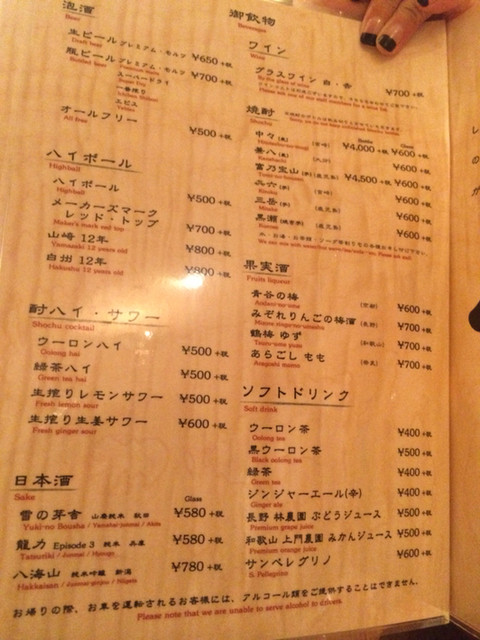 泡酒
Beer
生ビール プレミアム・モルツ ¥650 +税
Draft beer
瓶ビール プレミアム・モルツ ¥700 +税
Bottled beer
スーパードライ
一番搾り
ヱビス
オールフリー ¥500 +税
All free
ハイボール
Highball
ハイボール ¥500 +税
Highball
メーカーズマーク
レッド・トップ ¥700 +税
Maker's mark red top
山崎 12年 ¥800 +税
Yamazaki 12 years old
白州 12年 ¥800 +税
Hakushu 12 years old
酎ハイ・サワー
Shochu cocktail
ウーロンハイ ¥500 +税
Oolong hai
緑茶ハイ ¥500 +税
Green tea hai
生搾りレモンサワー ¥500 +税
Fresh lemon sour
生搾り生姜サワー ¥600 +税
Fresh ginger sour
日本酒
Sake
Glass
雪の茅舎 山廃純米 秋田 ¥580 +税
Yuki-no Bousha / Yamahai-junmai / Akita
龍力 Episode 3 純米 兵庫 ¥580 +税
Tatsuriki / Junmai / Hyougo
八海山 純米吟醸 新潟 ¥780 +税
Hakkaisan / Junmai-ginjou / Niigata
御飲物
Beverages
ワイン
Wine
グラスワイン 白・赤 ¥700 +税
By the glass of wine
焼酎
Shochu
Glass
中々(麦) (宮崎) ¥4,000 +税 ¥600 +税
兼八(麦) (大分) ¥600 +税
富乃宝山(芋) (鹿児島) ¥4,500 +税 ¥600 +税
㐂六(芋) (宮崎) ¥600 +税
三岳(芋) (鹿児島) ¥600 +税
黒瀬 (鹿児島) ¥600 +税
果実酒
Fruits liqueur
青谷の梅 (京都) ¥600 +税
みぞれりんごの梅酒 (長野) ¥700 +税
鶴梅 ゆず (和歌山) ¥700 +税
Tsuru-ume yuzu
あらごし もも (奈良) ¥700 +税
Aragoshi momo
ソフトドリンク
Soft drink
ウーロン茶 ¥400 +税
Oolong tea
黒ウーロン茶 ¥500 +税
Black oolong tea
緑茶 ¥400 +税
Green tea
ジンジャーエール(辛) ¥400 +税
Ginger ale
長野 林農園 ぶどうジュース ¥500 +税
Premium grape juice
和歌山 上門農園 みかんジュース ¥500 +税
Premium orange juice
サンペレグリノ ¥600 +税
S. Pellegrino
お帰りの際、お車を運転されるお客様には、アルコール類をご提供することはできません。
Please note that we are unable to serve alcohol to drivers